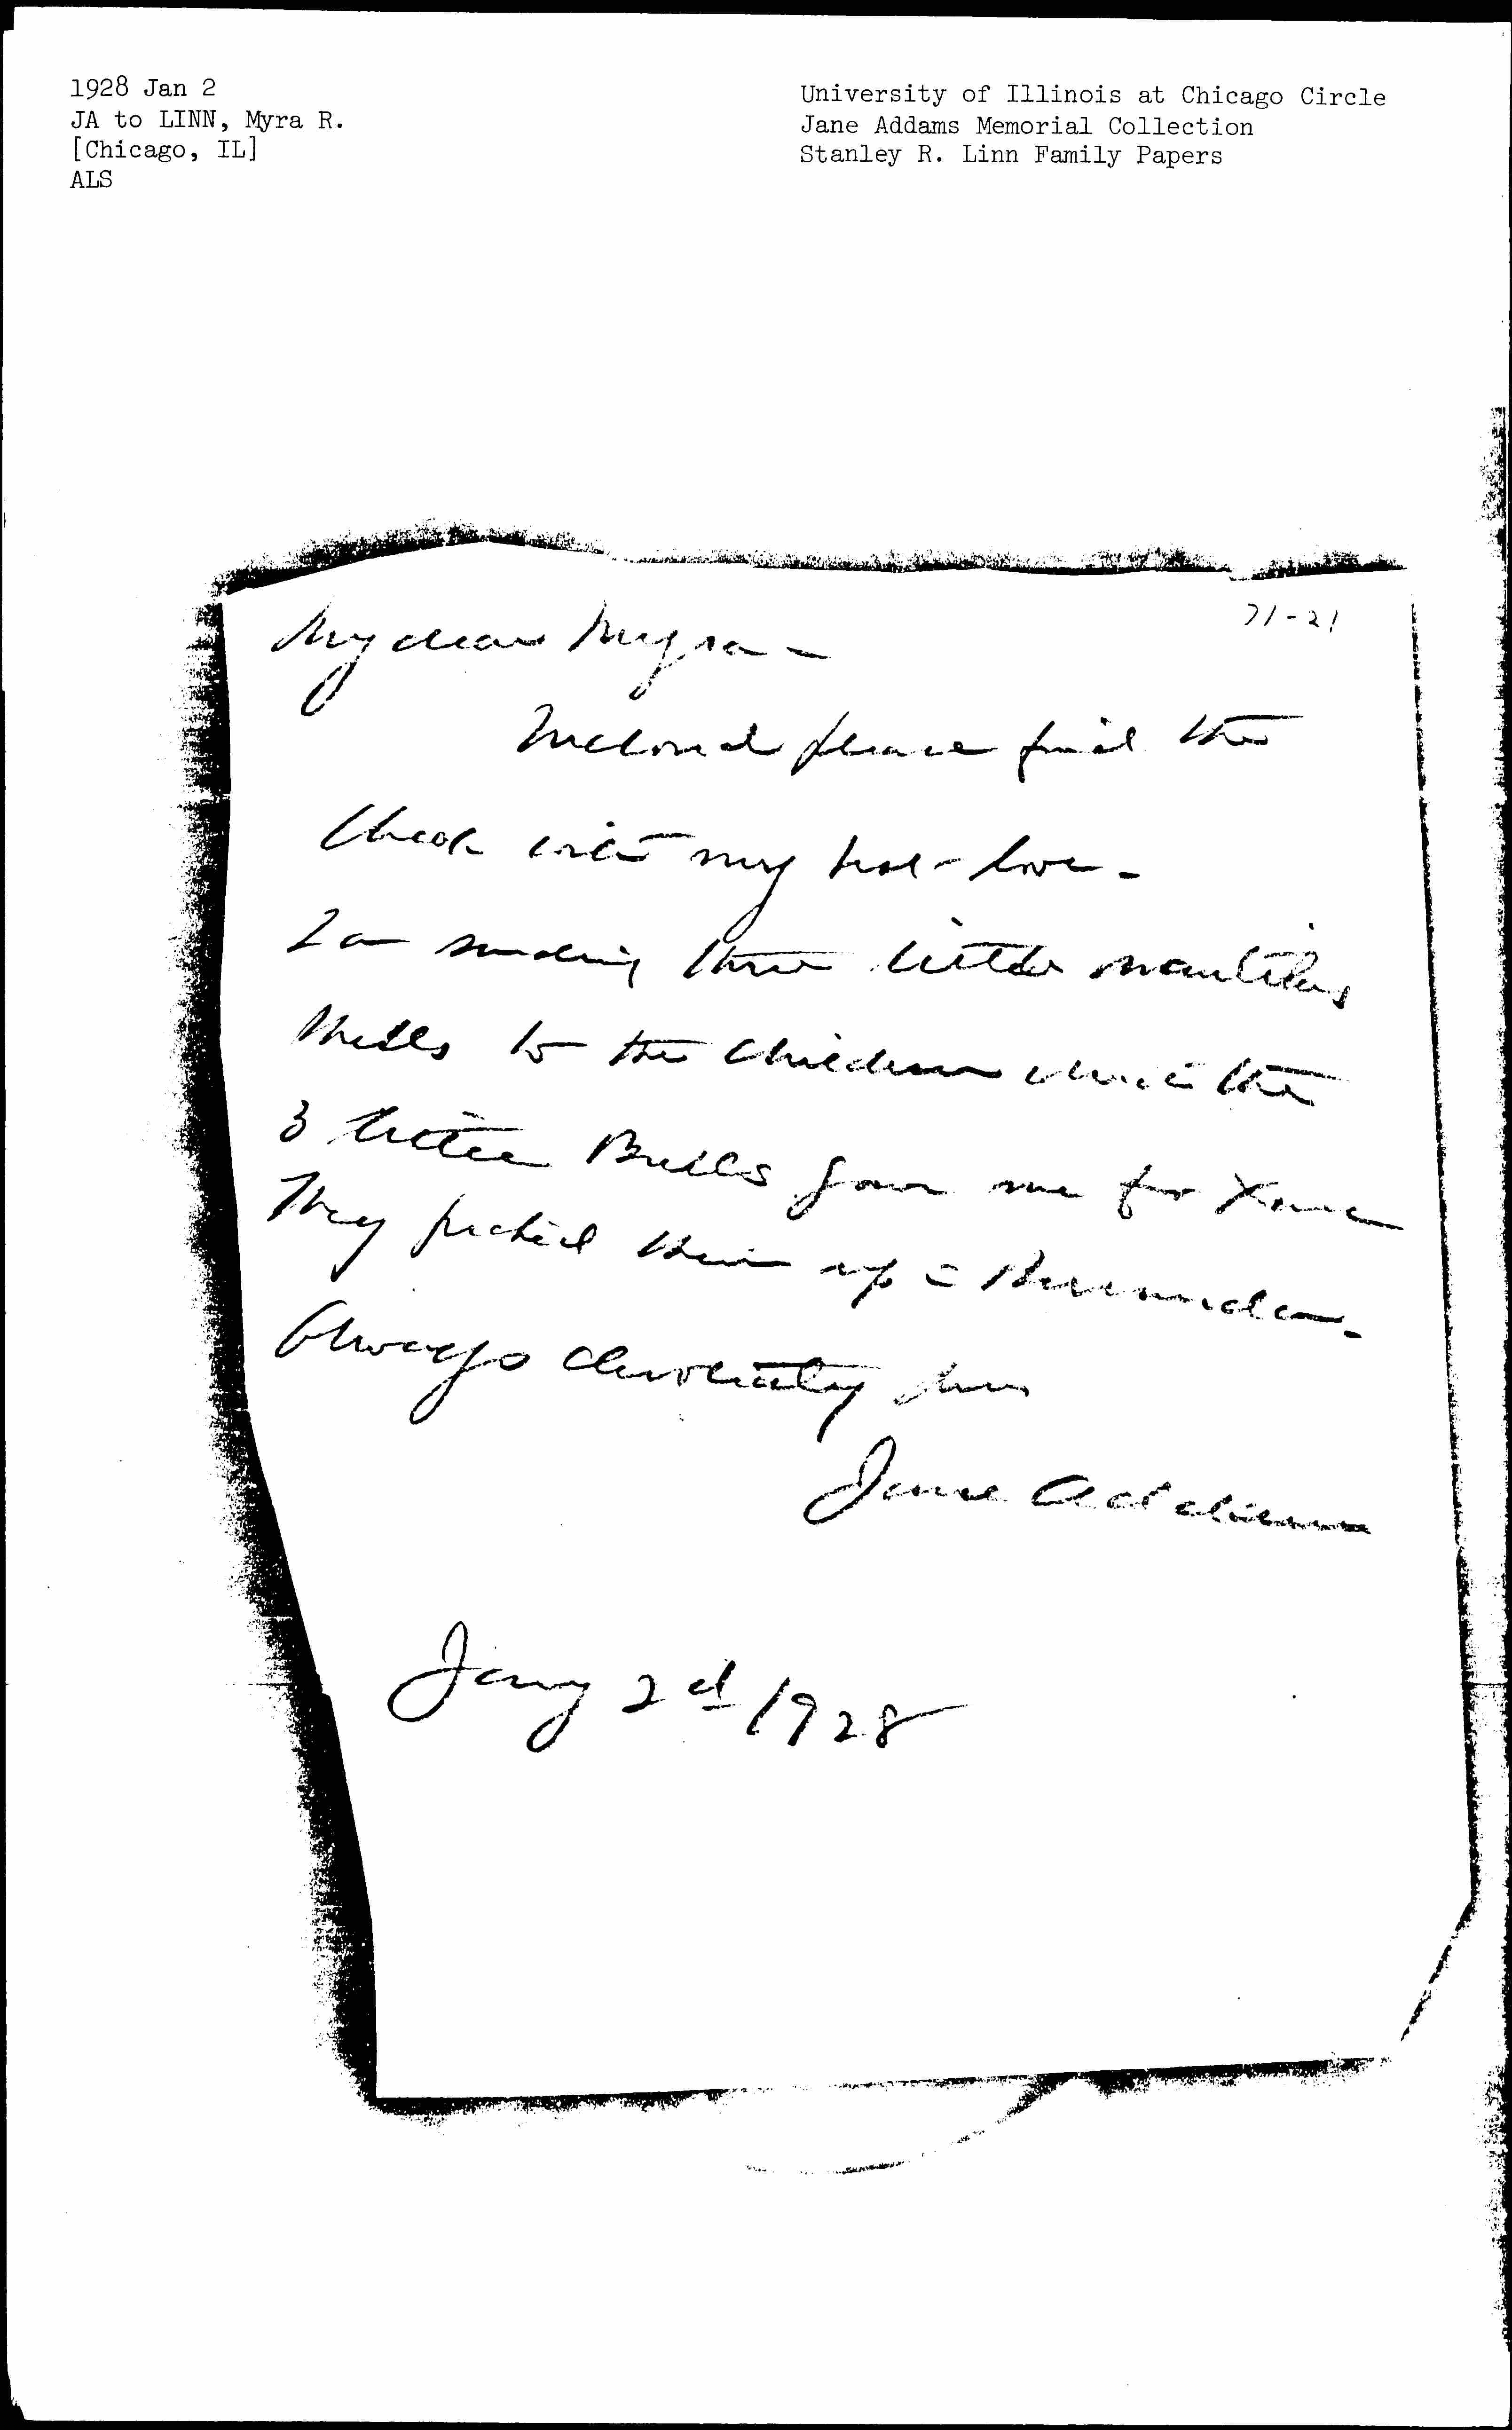 1928 Jan 2
JA to LINN, Myra R.
[Chicago, IL]
ALS
University of Illinois at Chicago Circle
Jane Addams Memorial Collection
Stanley R. Linn Family Papers
71-21
My dear Myra -
Inclosed please find the
Check with my best love -
I am sending three little nautilus
shells to the Children which the
3 little gave me for Xmas
They picked them up in Bermuda -
Always devotedly yours
Jane Addams
Jany 2d 1928